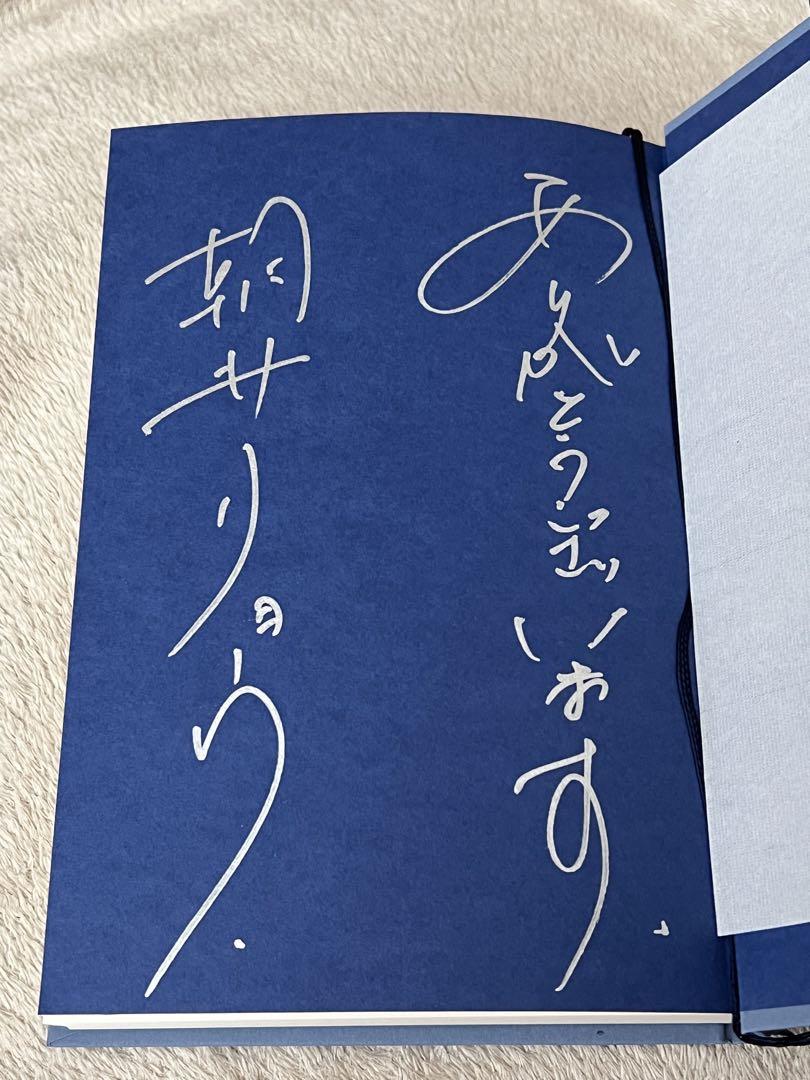 ありがとうございます。
朝井リョウ.